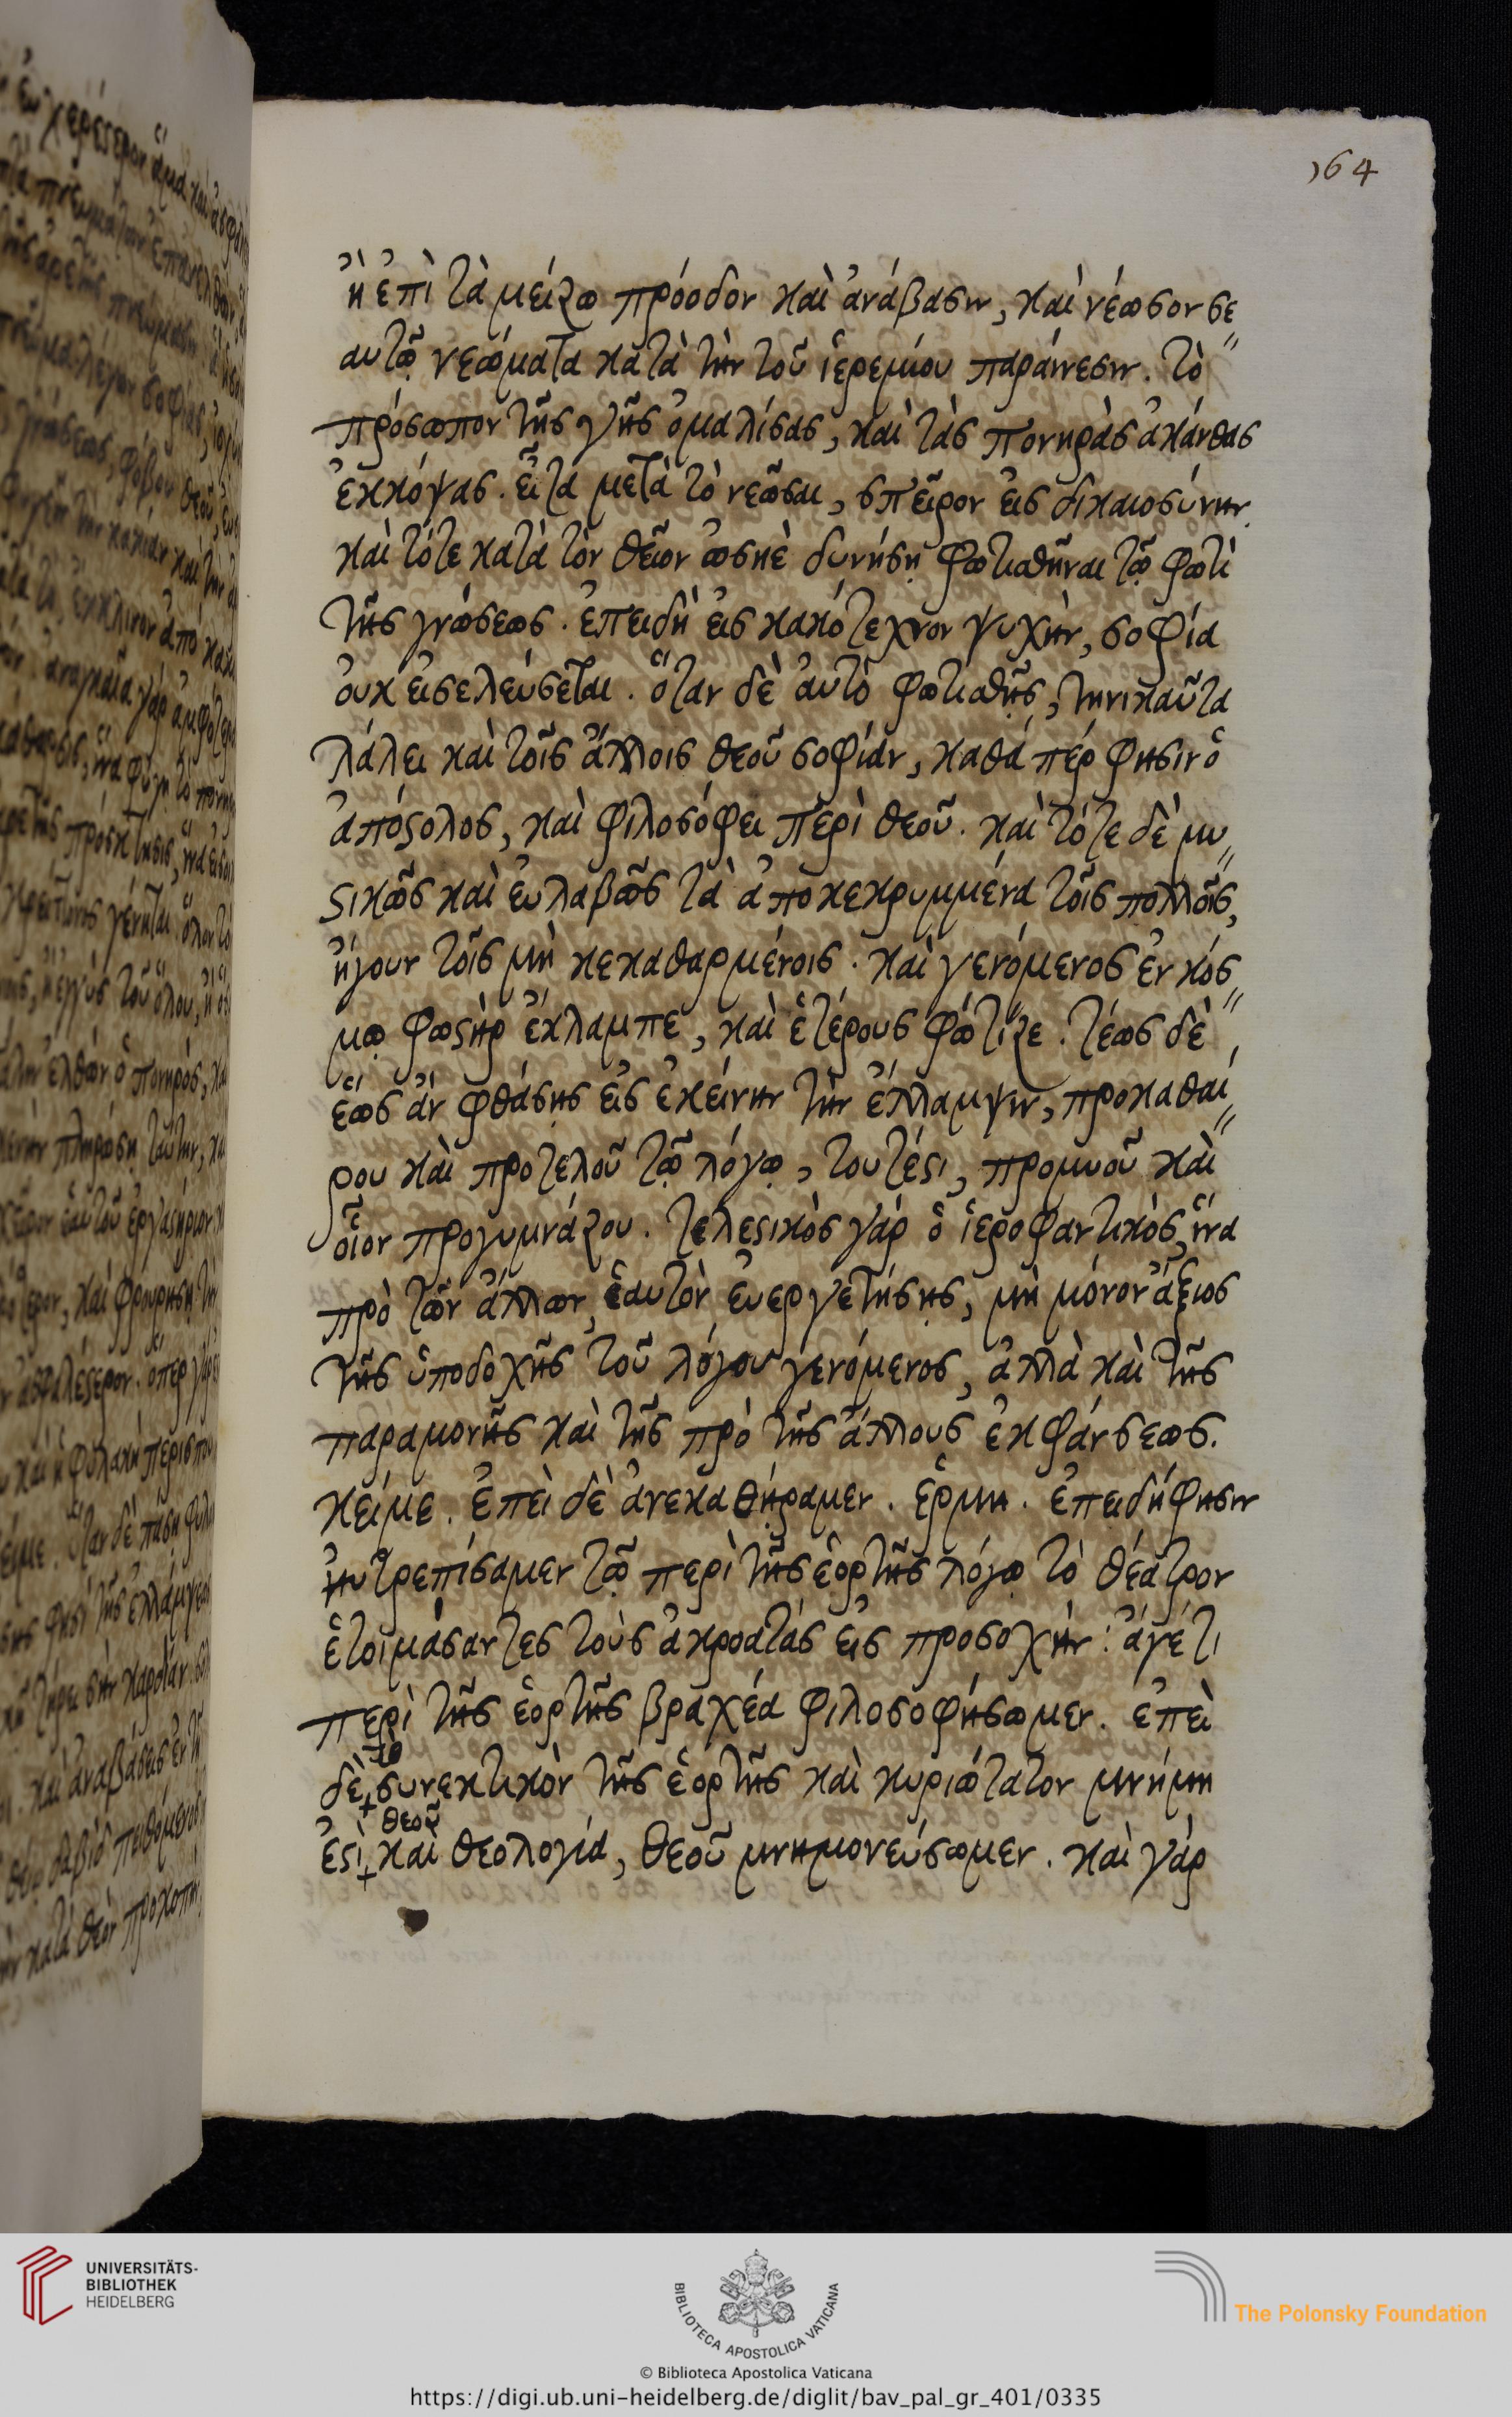 164
ἢ ἐπὶ τὰ μείζω πρόοδον καὶ ἀνάβασιν, καὶ νέωσον σε
αυτῷ νεώματα κατὰ τὴν τοῦ ἱερεμίου παραίνεσιν. τὸ
πρόσωπον τῆς γῆς ὁμαλίσας, καὶ τὰς πονηρὰς ἀκάνθας
ἐκκόψας. εἶτα μετὰ τὸ νεῶσαι, σπεῖρον εἰς δικαιοσύνην.
καὶ τότε κατὰ τὸν θεῖον ὠσηὲ δυνήσῃ φωτισθῆναι τῷ φωτὶ
τῆς γνώσεως. ἐπειδὴ εἰς κακότεχνον ψυχὴν, σοφία
οὐκ εἰσελεύσεται. ὅταν δὲ αὐτὸ φωτισθῇς, τηνικαῦτα
λάλει καὶ τοῖς ἄλλοις θεοῦ σοφίαν, καθά περ φησὶν ὁ
ἀπόστολος, καὶ φιλοσόφει περὶ θεοῦ. καὶ τότε δὲ μυ
στικῶς καὶ εὐλαβῶς τὰ ἀποκεκρυμμένα τοῖς πολλοῖς,
ἤγουν τοῖς μὴ κεκαθαρμένοις. καὶ γενόμενος ἐν κόσ
μῳ φωστὴρ ἔκλαμπε, καὶ ἑτέρους φώτιζε. τέως δὲ
ἕως ἂν φθάσῃς εἰς ἐκείνην τὴν ἔλλαμψιν, προκαθαί
ρου καὶ προτελοῦ τῷ λόγῳ, τουτέστι, προμυοῦ καὶ
οἷον προγυμνάζου. τελεστικὸς γὰρ ὁ ἱεροφαντικὸς, ἵνα
πρὸ τῶν ἄλλων, ἑαυτὸν εὐεργετήσῃς, μὴ μόνον ἄξιος
τῆς ὑποδοχῆς τοῦ λόγου γενόμενος, ἀλλὰ καὶ τῆς
παραμονῆς καὶ τῆς πρὸ τῆς ἄλλους ἐκφάνσεως.
κείμε. Ἐπεὶ δὲ ἀνεκαθήραμεν. ἑρμη. ἐπειδή φησιν
ηὐτρεπίσαμεν τῷ περὶ τῆς ἑορτῆς λόγῳ τὸ θέατρον
ἑτοιμάσαντες τοὺς ἀκροατάς εἰς προσοχήν: ἄγέ τι
περὶ τῆς ἑορτῆς βραχέα φιλοσοφήσωμεν. ἐπεὶ
τὸ
δὲ + συνεκτικὸν τῆς ἑορτῆς καὶ κυριώτατον μνήμη
θεοῦ
ἐστὶ + καὶ θεολογία, θεοῦ μνημονεύσωμεν. καὶ γάρ
UNIVERSITÄTS-
BIBLIOTHEK
HEIDELBERG
BIBLIOTECA APOSTOLICA VATICANA
The Polonsky Foundation
© Biblioteca Apostolica Vaticana
https://digi.ub.uni-heidelberg.de/diglit/bav_pal_gr_401/0335